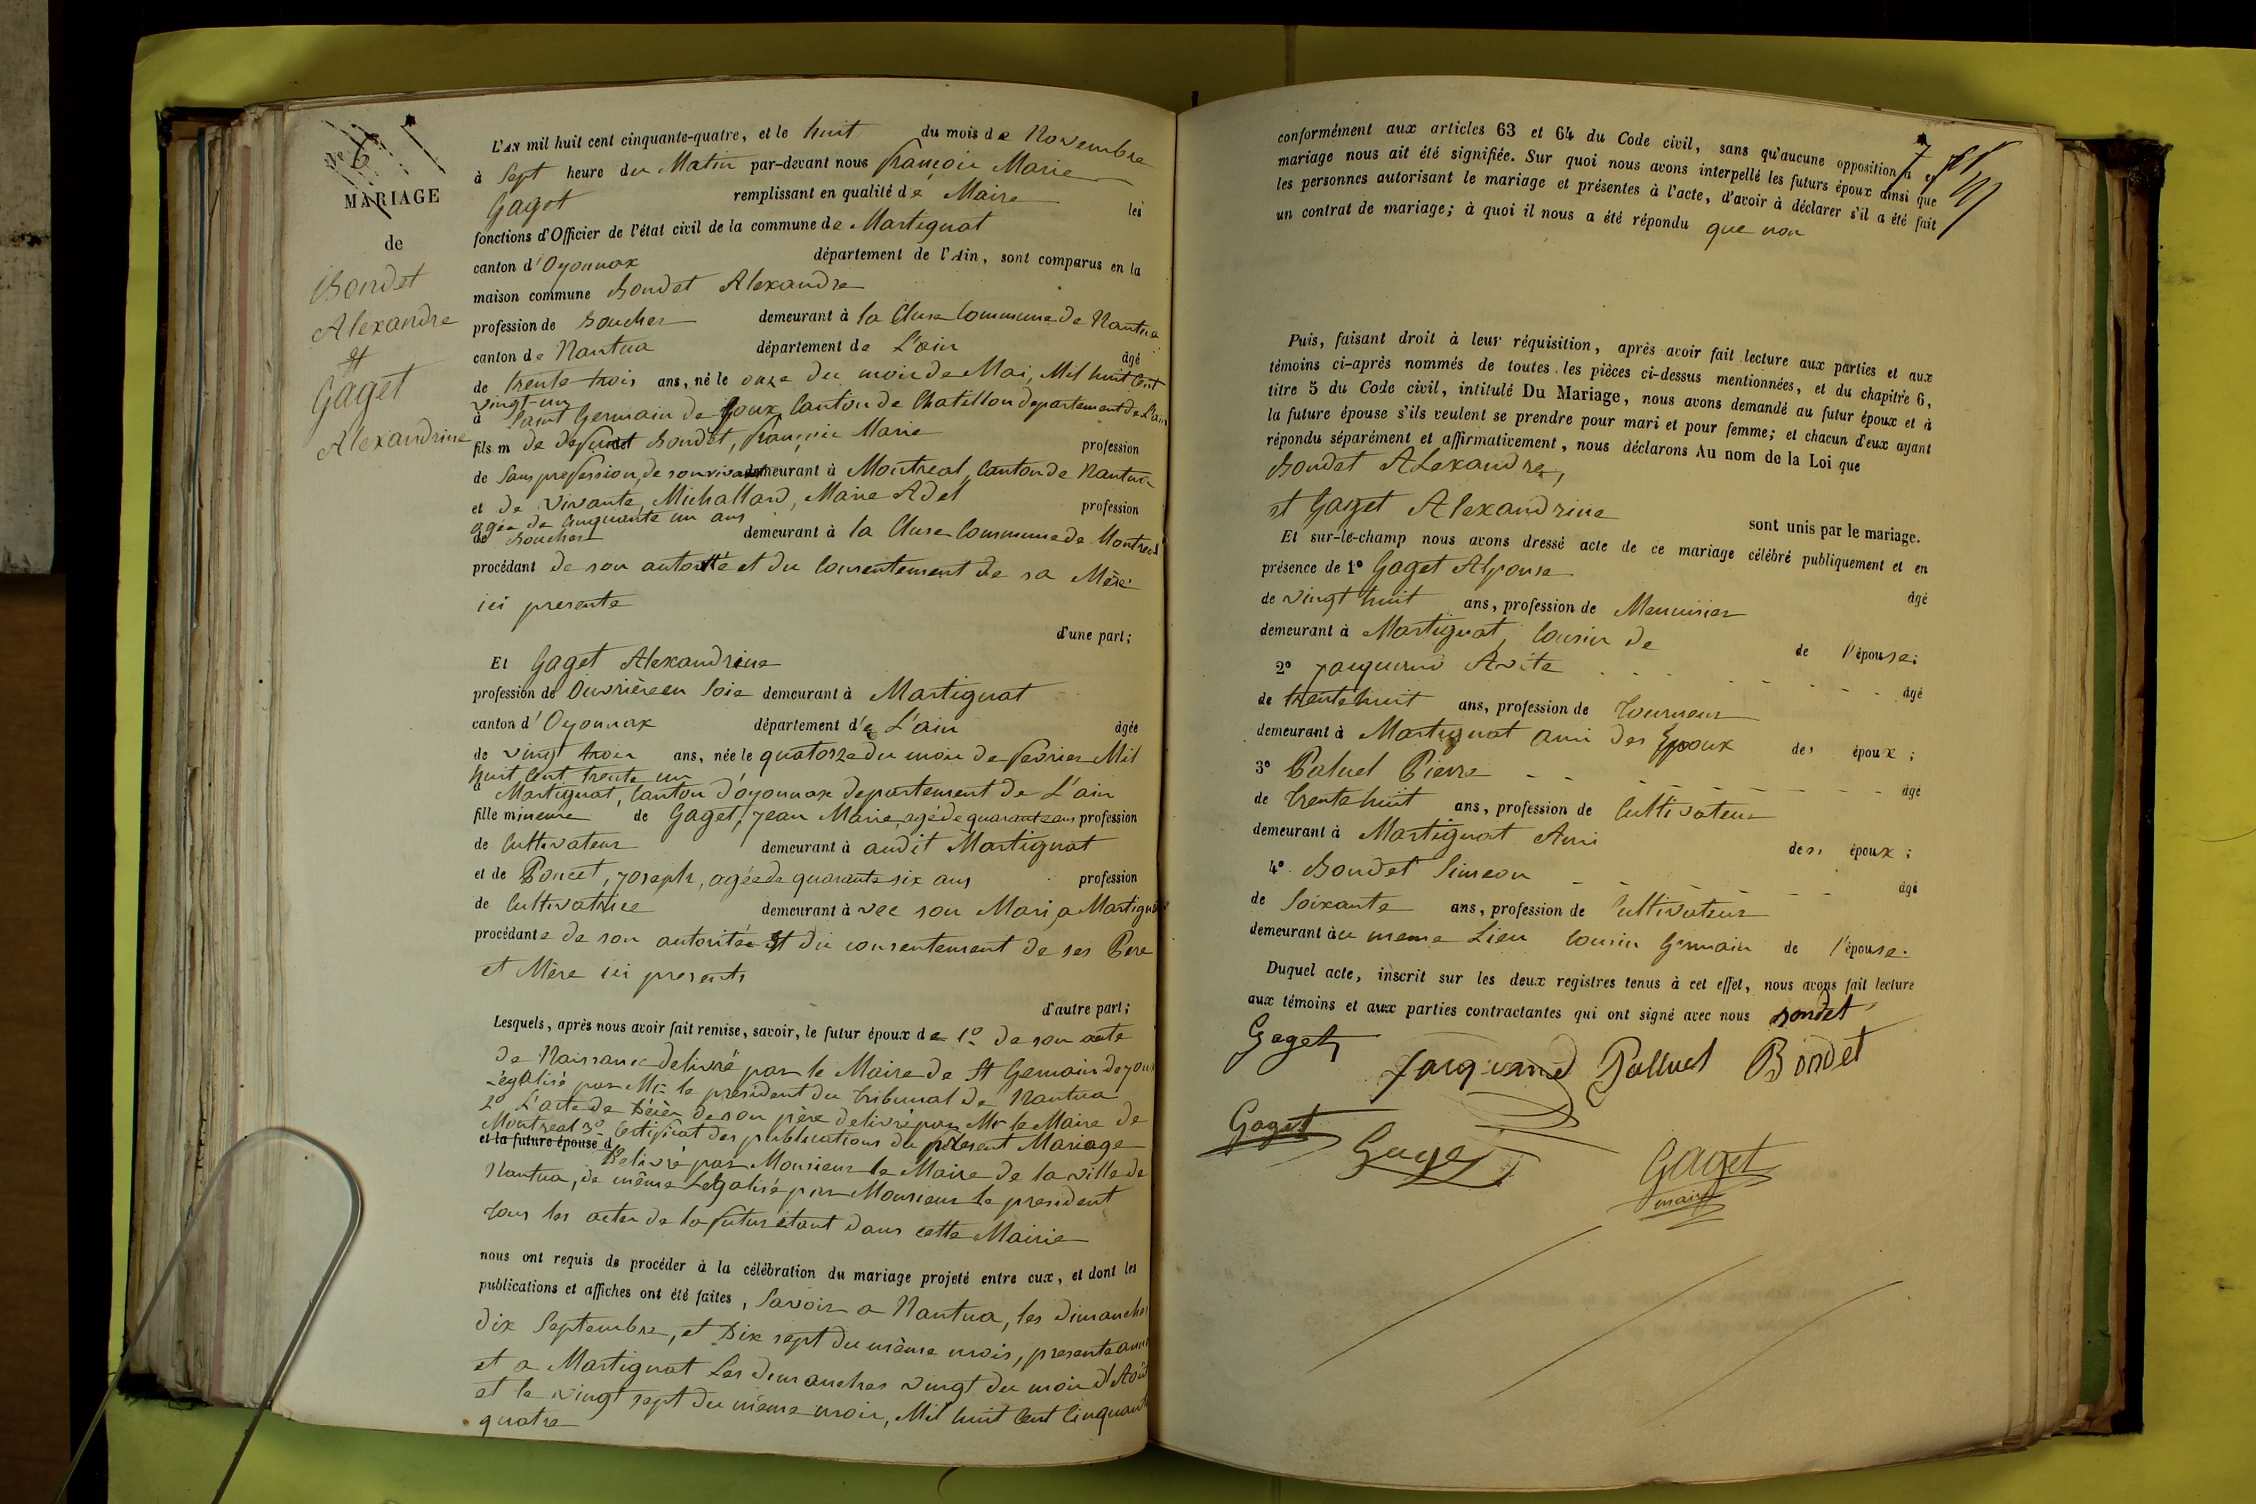 N° 6
MARIAGE
de
Bondet
Alexandre
et
Gaget
Alexandrine
L'AN mil huit cent cinquante-quatre, et le huit du mois de Novembre
à Sept heure du Matin par-devant nous françois Marie
Gaget remplissant en qualité de Maire les
fonctions d'Officier de l'état civil de la commune de Martignat
canton d'Oyonnax département de l'Ain, sont comparus en la
maison commune Bondet Alexandre
profession de Boucher demeurant à la Cluse Commune de Nantua
canton de Nantua département de L'ain âgé
de trente trois ans, né le onze du mois de Mai, Mil huit Cent
vingt-un
à Saint Germain de Joux, Canton de Chatillon departement de L'ain
fils m de defunt Bondet, françois Marie profession
de Sans profession, de son vivant demeurant à Montreal, Canton de Nantua
et de vivante, Michallard, Marie Adel profession
agée de Cinquante un ans
de Boucher demeurant à la Cluse Commune de Montreal
procédant de son autorité et du Consentement de sa Mère
ici presente
d'une part;
Et Gaget Alexandrine
profession de Ouvrière en Soie demeurant à Martignat
canton d'Oyonnax département de L'ain âgée
de vingt trois ans, née le quatorze du mois de fevrier Mil
huit Cent trente un
à Martignat, Canton d'oyonnax departement de L'ain
fille mineure de Gaget, Jean Marie, agé de quarante ans profession
de Cultivateur demeurant à audit Martignat
et de Poncet, Joseph, agée de quarante six ans profession
de Cultivatrice demeurant à vec son Mari, a Martignat
procédante de son autorité et du consentement de ses Pere
et Mère ici presents
d'autre part;
Lesquels, après nous avoir fait remise, savoir, le futur époux de 1° de son acte
de Naissance delivré par le Maire de St Germain de Joux
Légalisé par Mr le president du tribunal de Nantua
2° L'acte de Décès de son père delivré par Mr le Maire de
Montreal 3° Certificat des publications du present Mariage
et la future épouse d
Delivré par Monsieur le Maire de la ville de
Nantua, de même Légalisé par Monsieur le president
tous les actes de la future étant dans cette Mairie
nous ont requis de procéder à la célébration du mariage projeté entre eux, et dont les
publications et affiches ont été faites, Savoir a Nantua, les dimanches
dix Septembre, et Dix sept du même mois, presente année
et a Martignat Les dimanches vingt du mois d'Août
et le vingt sept du même mois, Mil huit Cent Cinquante
quatre
7
conformément aux articles 63 et 64 du Code civil, sans qu'aucune opposition à ce
mariage nous ait été signifiée. Sur quoi nous avons interpellé les futurs époux ainsi que
les personnes autorisant le mariage et présentes à l'acte, d'avoir à déclarer s'il a été fait
un contrat de mariage; à quoi il nous a été répondu que non
Puis, faisant droit à leur réquisition, après avoir fait lecture aux parties et aux
témoins ci-après nommés de toutes les pièces ci-dessus mentionnées, et du chapitre 6,
titre 5 du Code civil, intitulé Du Mariage, nous avons demandé au futur époux et à
la future épouse s'ils veulent se prendre pour mari et pour femme; et chacun d'eux ayant
répondu séparément et affirmativement, nous déclarons Au nom de la Loi que
Bondet Alexandre,
et Gaget Alexandrine sont unis par le mariage.
Et sur-le-champ nous avons dressé acte de ce mariage célébré publiquement et en
présence de 1° Gaget Alponse âgé
de vingt huit ans, profession de Menuisier
demeurant à Martignat, Cousin de de l'épouse;
2° Jacquand Avite âgé
de trente huit ans, profession de Tourneur
demeurant à Martignat ami des Epoux des époux;
3° Paluel Pierre âgé
de trente huit ans, profession de Cultivateur
demeurant à Martignat Ami des époux;
4° Bondet Simeon âgé
de Soixante ans, profession de Cultivateur
demeurant àu meme Lieu Cousin Germain de l'épouse.
Duquel acte, inscrit sur les deux registres tenus à cet effet, nous avons fait lecture
aux témoins et aux parties contractantes qui ont signé avec nous Bondet
Gaget Jacquand Palluel Bondet
Gaget Gaget Gaget
maire